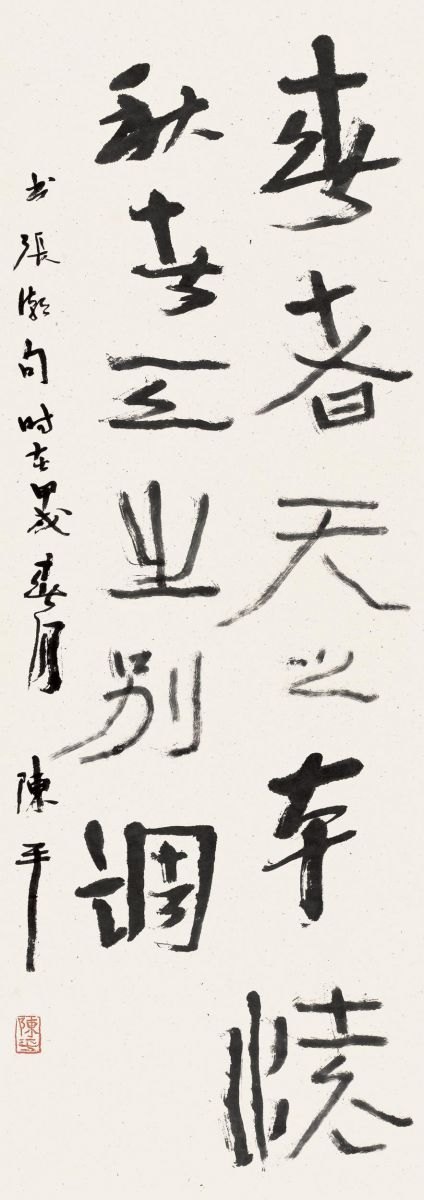 春者天之本懷
秋者天之別調
书張潮句时在甲戌春月 陳平
陳平